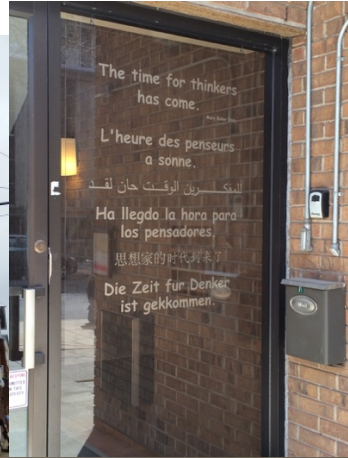 The time for thinkers
has come.
L'heure des penseurs
a sonne.
للمفكــــرين الوقــت حان لقــد
Ha llegdo la hora para
los pensadores.
思想家的时代到来了
Die Zeit fur Denker
ist gekkommen.